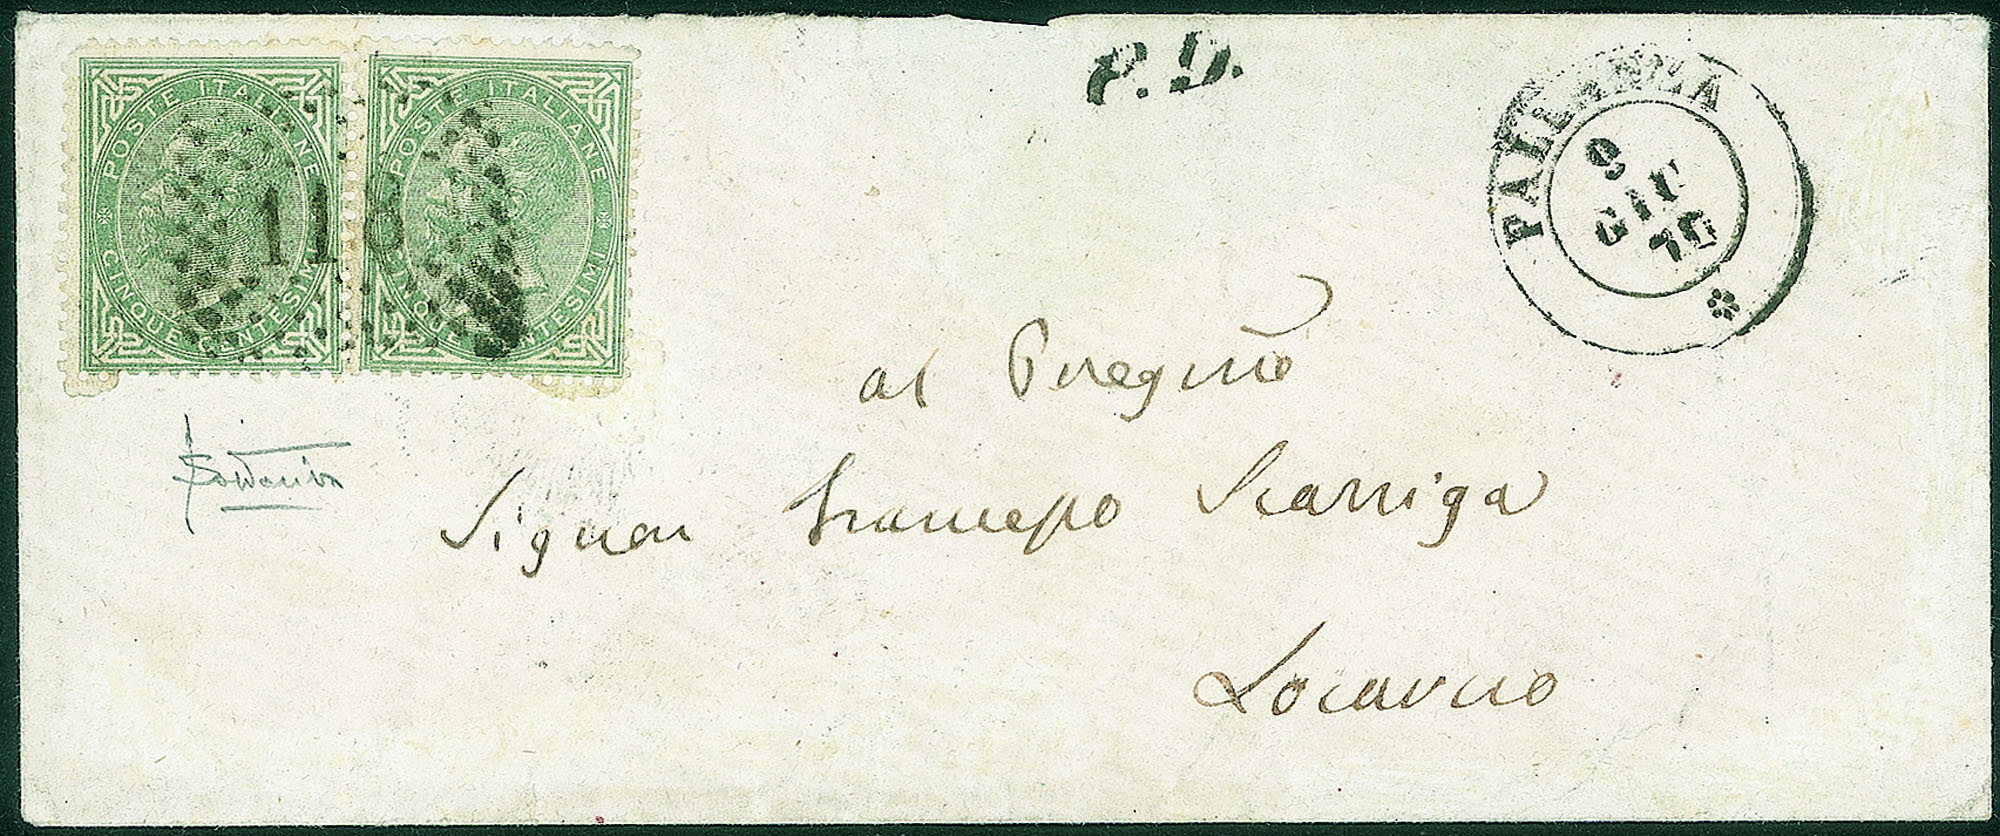 POSTE ITALIANE
CINQUE CENTESIMI
POSTE ITALIANE
CINQUE CENTESIMI
118
P.D.
PALLANZA
9
GIU
70
al Pregmo
Signor Francesco Scazziga
Locarno